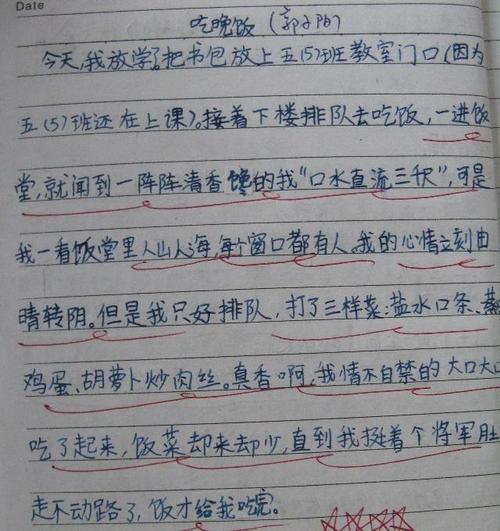 Date
吃晚饭 (郭子阳)
今天,我放学了把书包放上五(5)班教室门口(因为
五(5)班还在上课)。接着下楼排队去吃饭,一进饭
堂,就闻到一阵阵清香馋的我“口水直流三尺”,可是
我一看饭堂里人山人海,每个窗口都有人。我的心情立刻由
晴转阴。但是我只好排队,打了三样菜:盐水口条、蒸
鸡蛋、胡萝卜炒肉丝。真香啊,我情不自禁的大口大口
吃了起来,饭菜却来却少,直到我挺着个将军肚
走不动路了,饭才给我吃完。